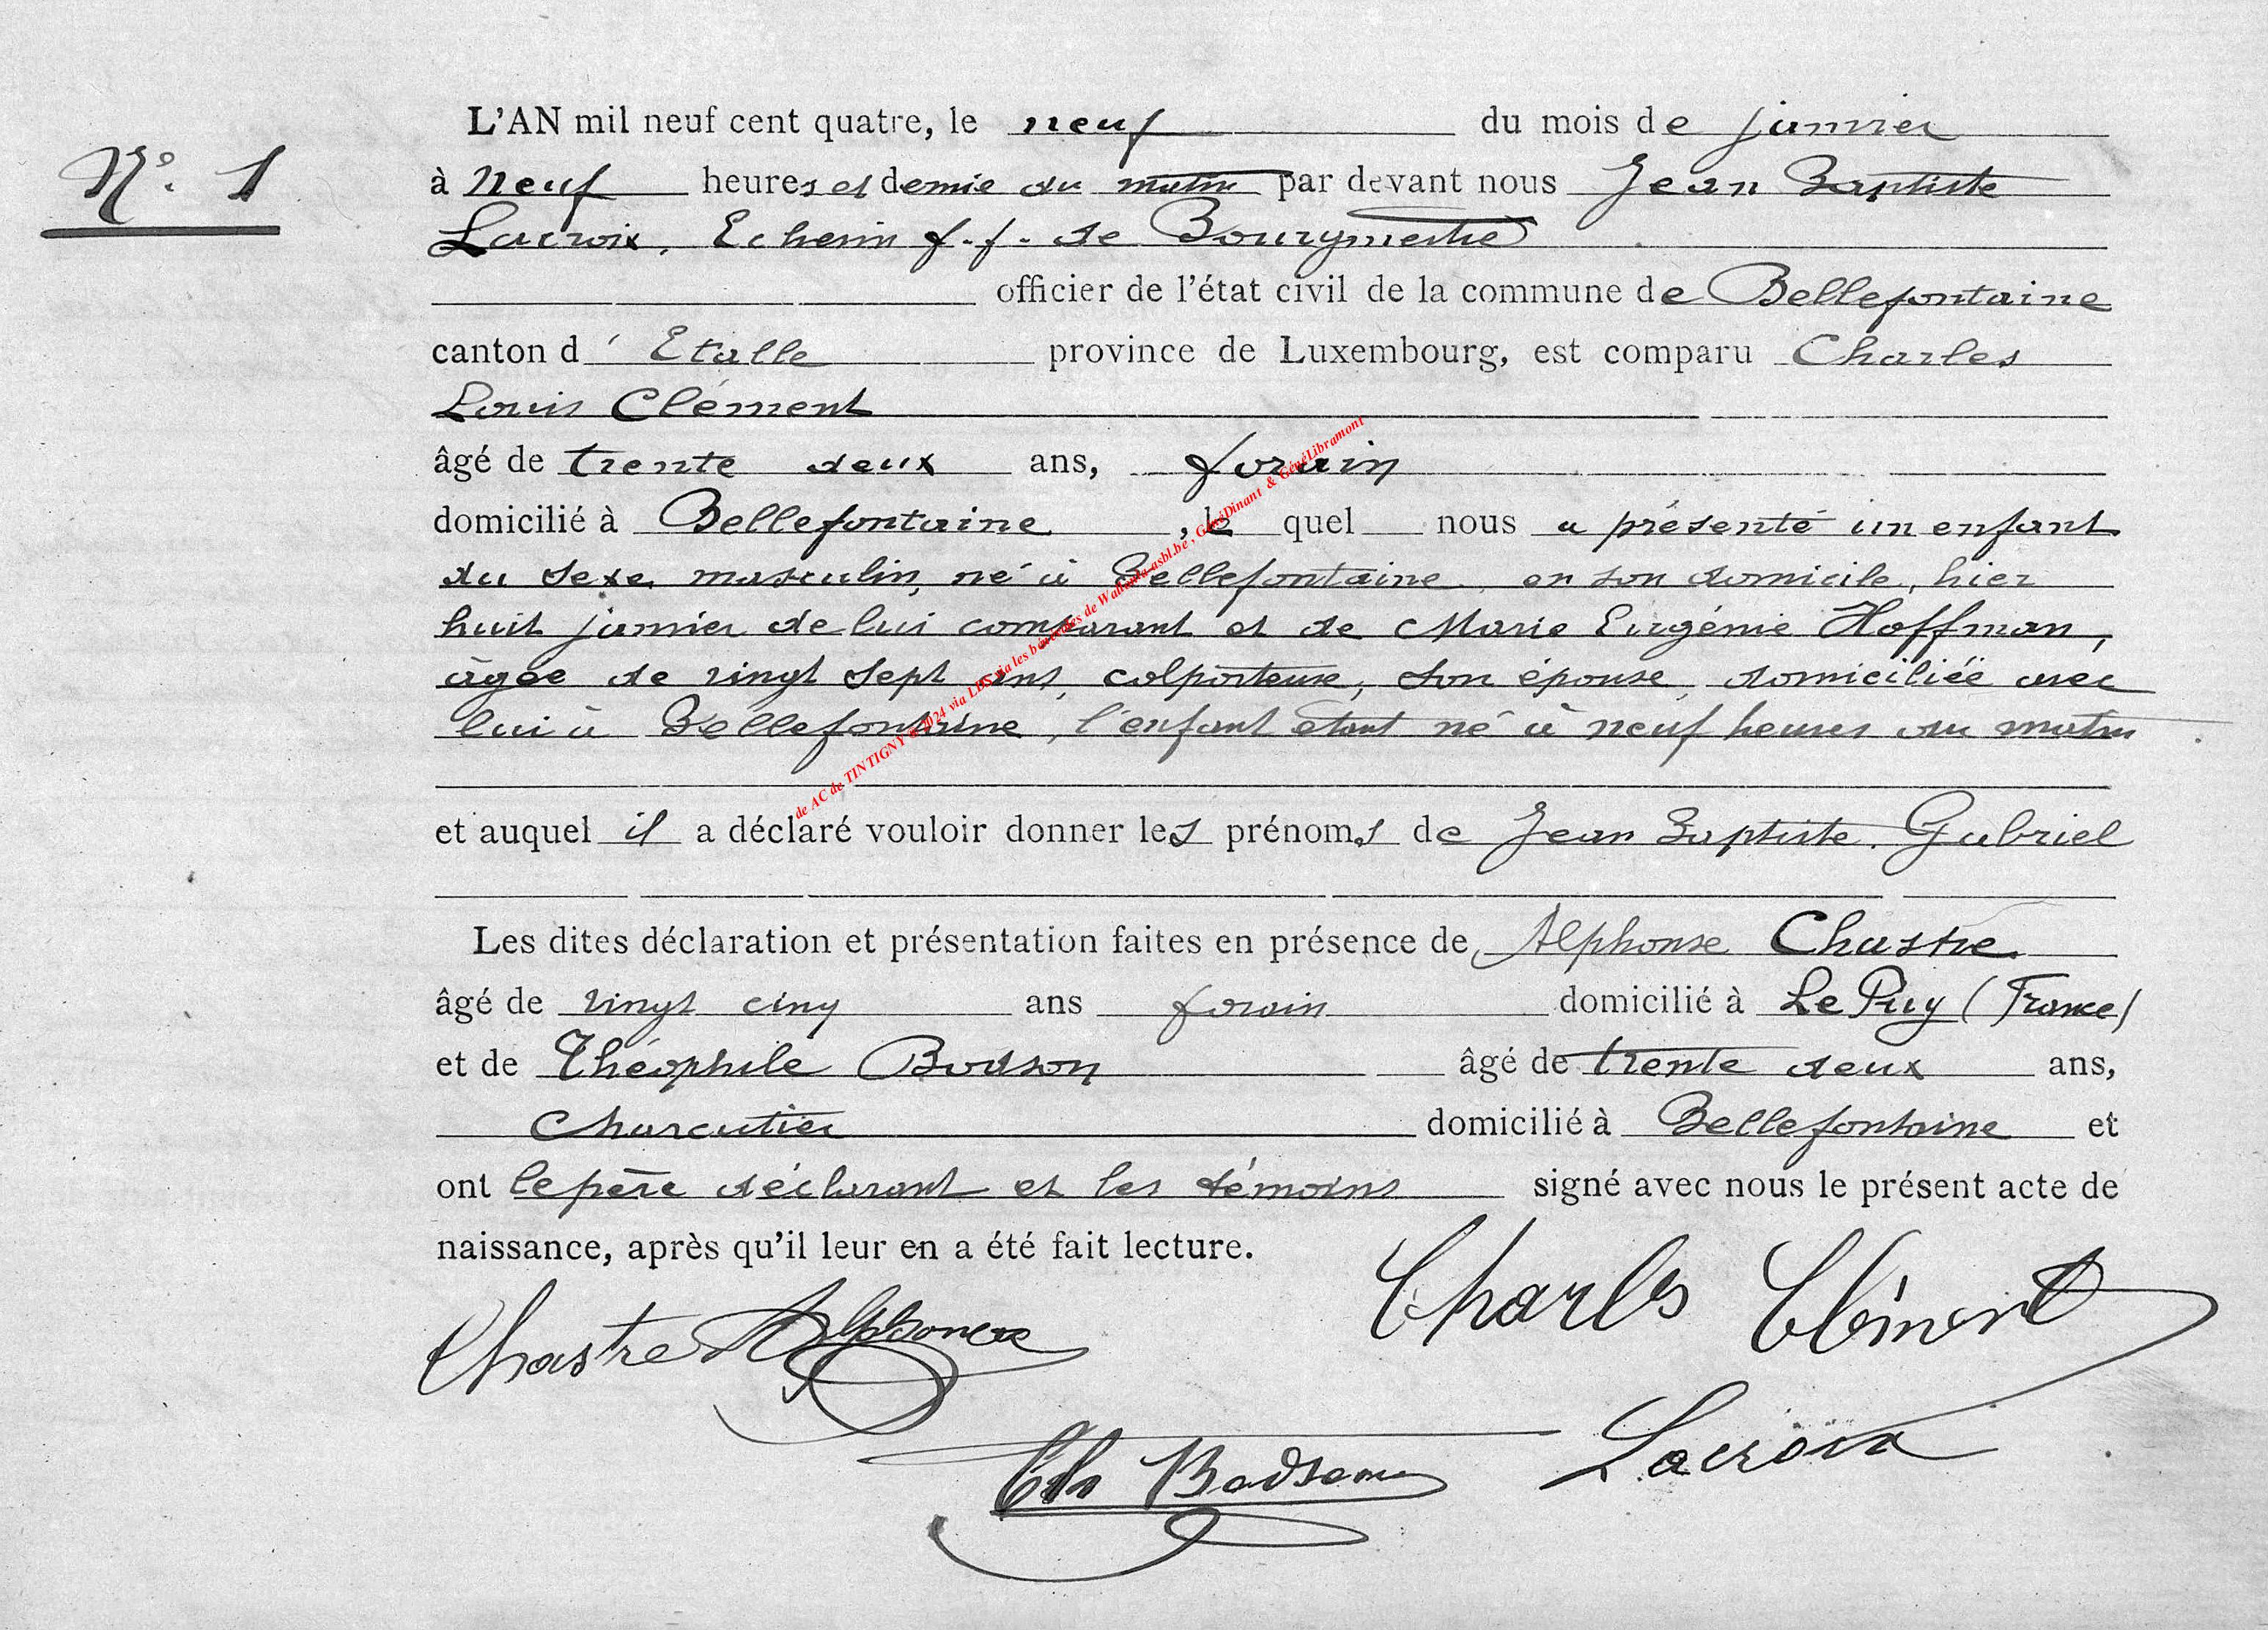 L'AN mil neuf cent quatre, le neuf du mois de janvier
N° 1
à neuf heures et demie du matin par devant nous Jean Baptiste
Lacroix, Echevin f.f. de Bourgmestre
officier de l'état civil de la commune de Bellefontaine
canton d'Etalle province de Luxembourg, est comparu Charles
Louis Clément
âgé de trente deux ans, forain
domicilié à Bellefontaine, le quel nous a présenté un enfant
du sexe masculin, né à Bellefontaine, en son domicile, hier
huit janvier de lui comparant et de Marie Eugénie Hoffman,
âgée de vingt sept ans, colporteuse, son épouse, domiciliée avec
lui à Bellefontaine, l'enfant étant né à neuf heures du matin
de AC de TINTIGNY © 2024 via LDS via les bénévoles de Wallonia-asbl.be, GénéDinant & GénéLibramont
et auquel il a déclaré vouloir donner les prénoms de Jean Baptiste Gabriel
Les dites déclaration et présentation faites en présence de Alphonse Chastre
âgé de vingt cinq ans forain domicilié à Le Puy (France)
et de Théophile Bodson âgé de trente deux ans,
charcutier domicilié à Bellefontaine et
ont le père déclarant et les témoins signé avec nous le présent acte de
naissance, après qu'il leur en a été fait lecture.
Charles Clément
Chastre Alphonse
Th Bodson Lacroix